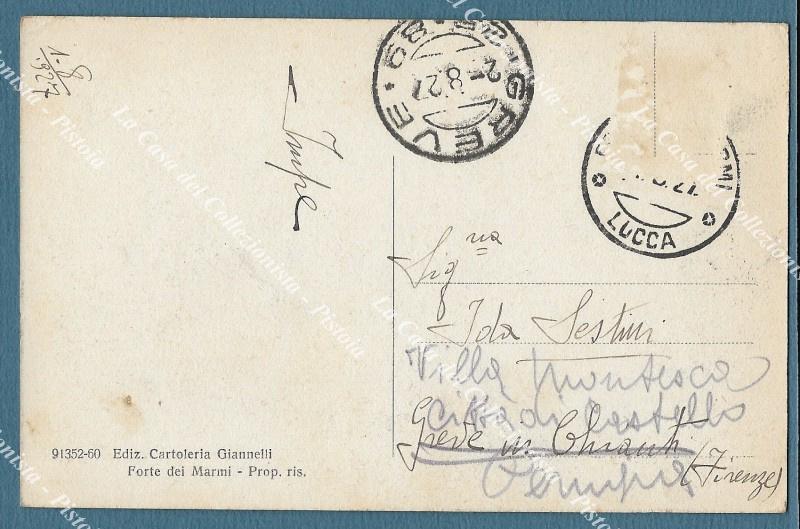 1-8
1927
GREVE
2-8.27
LUCCA
Signa
Ida Sestini
Villa Montesca
Città di Castello
Greve in Chianti
(Firenze)
91352-60 Ediz. Cartoleria Giannelli
Forte dei Marmi - Prop. ris.
La Casa del Collezionista - Pistoia